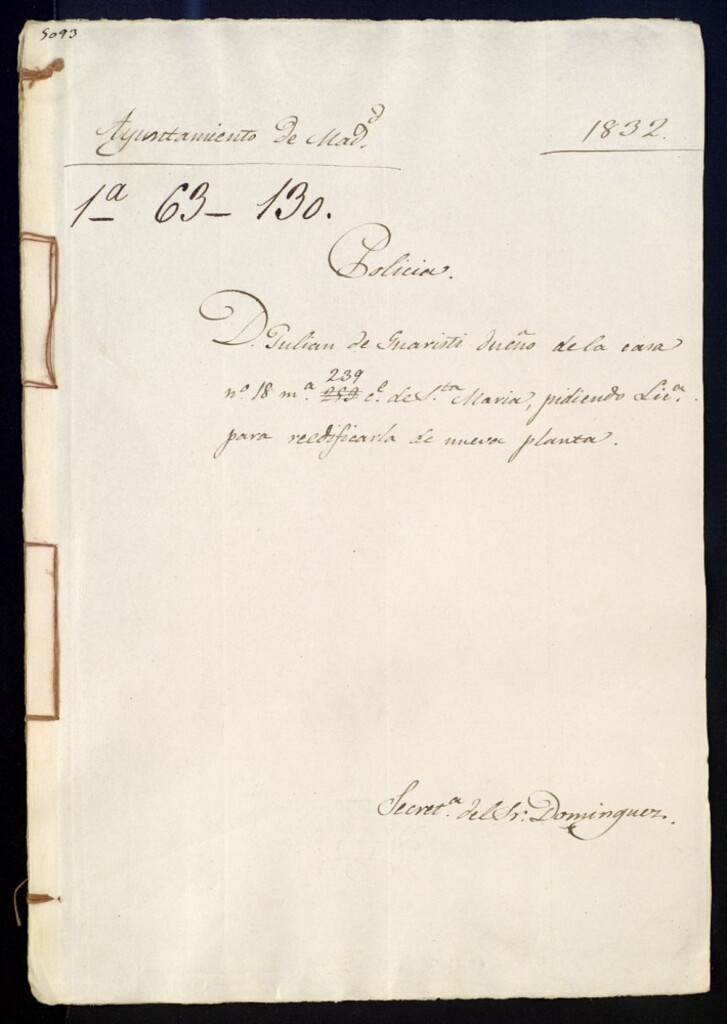 5093
Ayuntamiento de Mad.d
1832.
1a 63- 130.
Policia.
D. Julian de Guaristi dueño de la casa
239
no 18 m.a 259 c.e de S.ta Maria, pidiendo Lic.a
para reedificarla de nueva planta.
Secret.a del Sr. Dominguez.